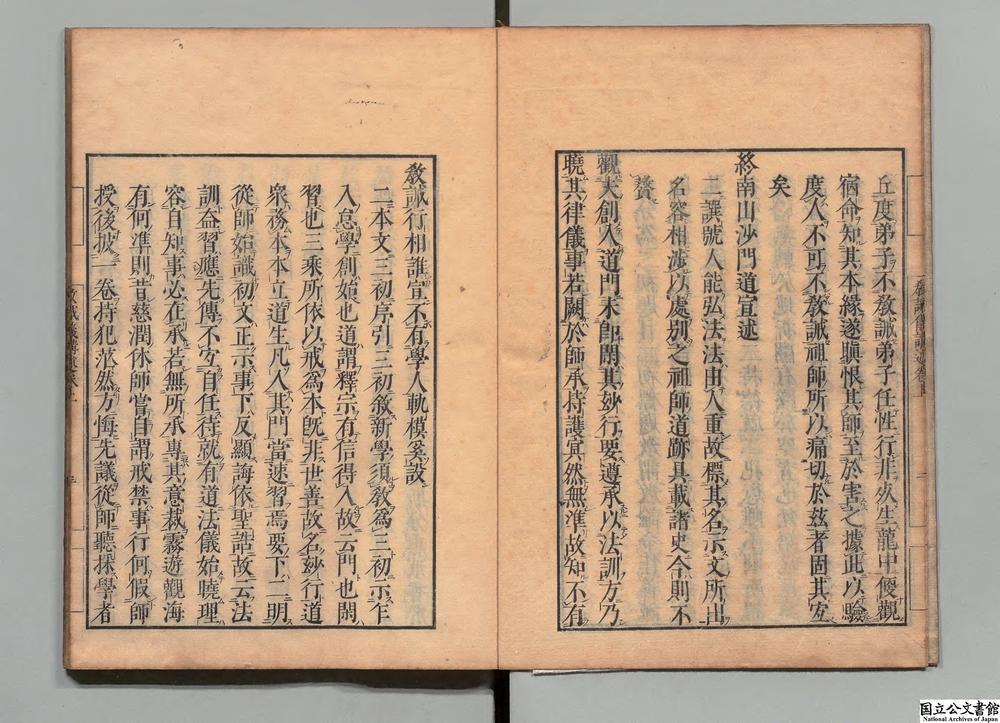 丘度弟子不教誡弟子任性行非後生龍中傻觀
宿命知其本緣遂瞋恨其師至於害之據此以驗
度人不可不教誡祖師所以痛切於茲者固其宜
矣
終南山沙門道宣述
三譔號人能弘法法由人重故標其名示文所出
名容相涉以處別之祖師道跡具載諸史今則不
贅
觀夫創入道門未卽閑其妙行要遵承以法訓方乃
曉其律儀事若闕於師承持護冥然無準故知不有
教誡行相誰宣不有學人軌模奚設
二本文三初序引三初敘新學須教為三初示乍
入怠學創始也道謂釋宗有信得入故云門也閑
習也三乘所依以戒為本旣非世善故名妙行道
衆務本本立道生凡入其門當速習焉要下二明
從師始識初文正示事下反顯誨依聖誥故云法
訓益習應先傳不宜自任待就有道法儀始曉理
容自知事必在承若無所承專其意裁霧遊觀海
有何準則昔慈潤休師嘗自謂戒禁事行何假師
授後披一卷持犯茫然方悔先議從師聽採學者
国立公文書館
National Archives of Japan